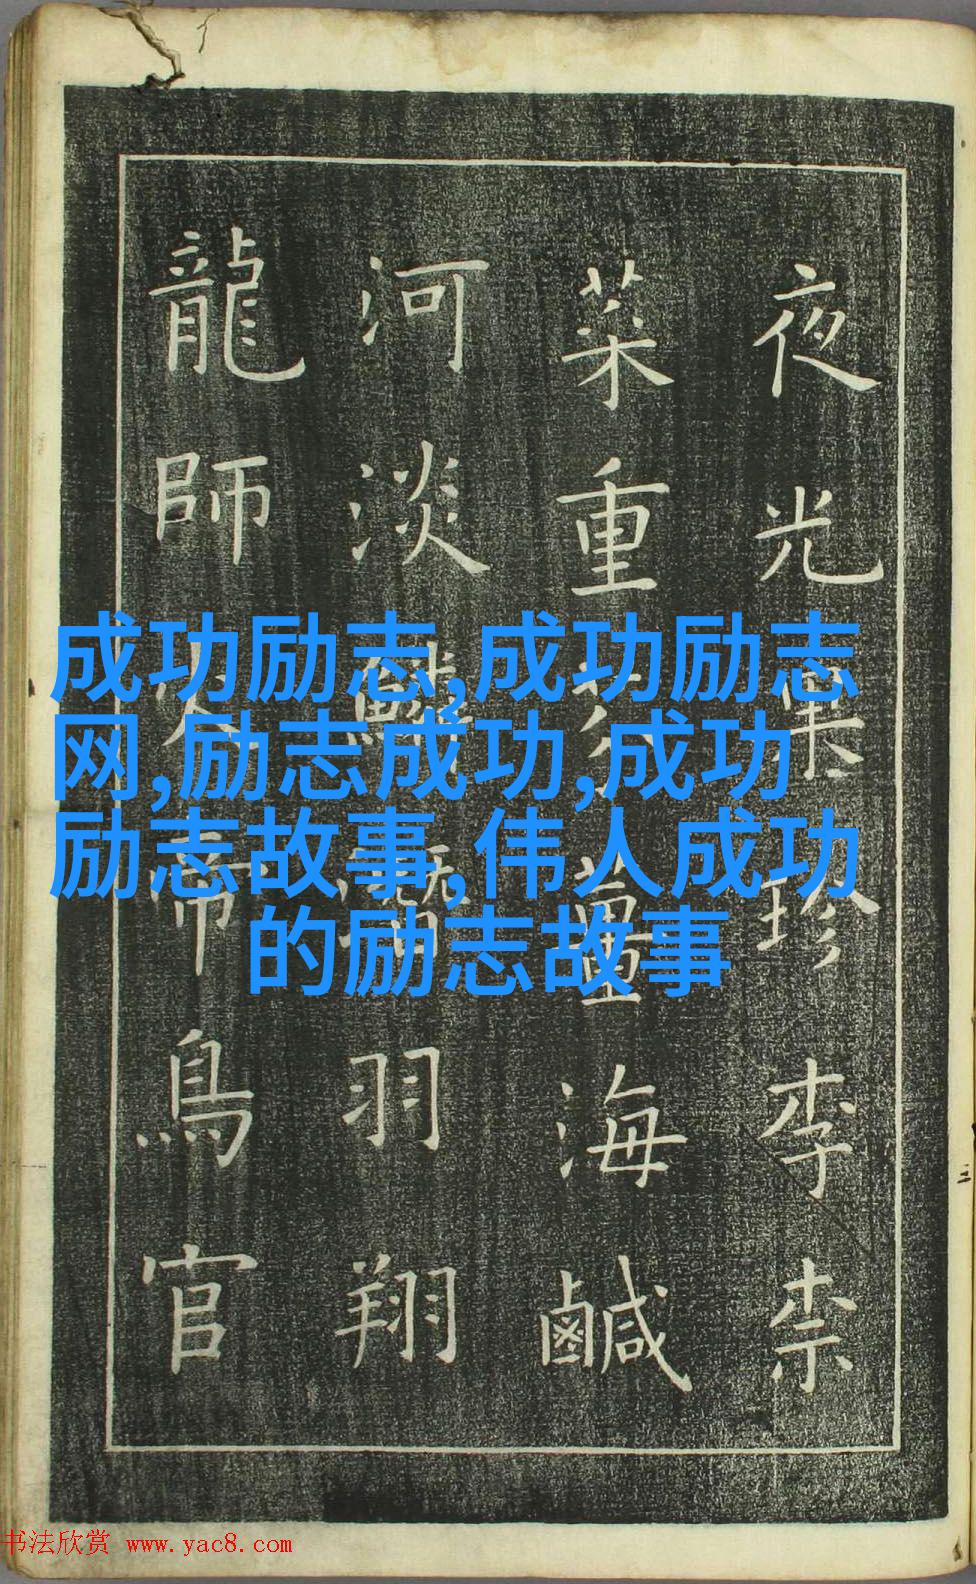 夜光果珍李柰
菜重芥薑海鹹
河淡鱗潛羽翔
龍師火帝鳥官
成功励志,成功励志
网,励志成功,成功
励志故事,伟人成功
的励志故事
书法欣赏 www.yac8.com